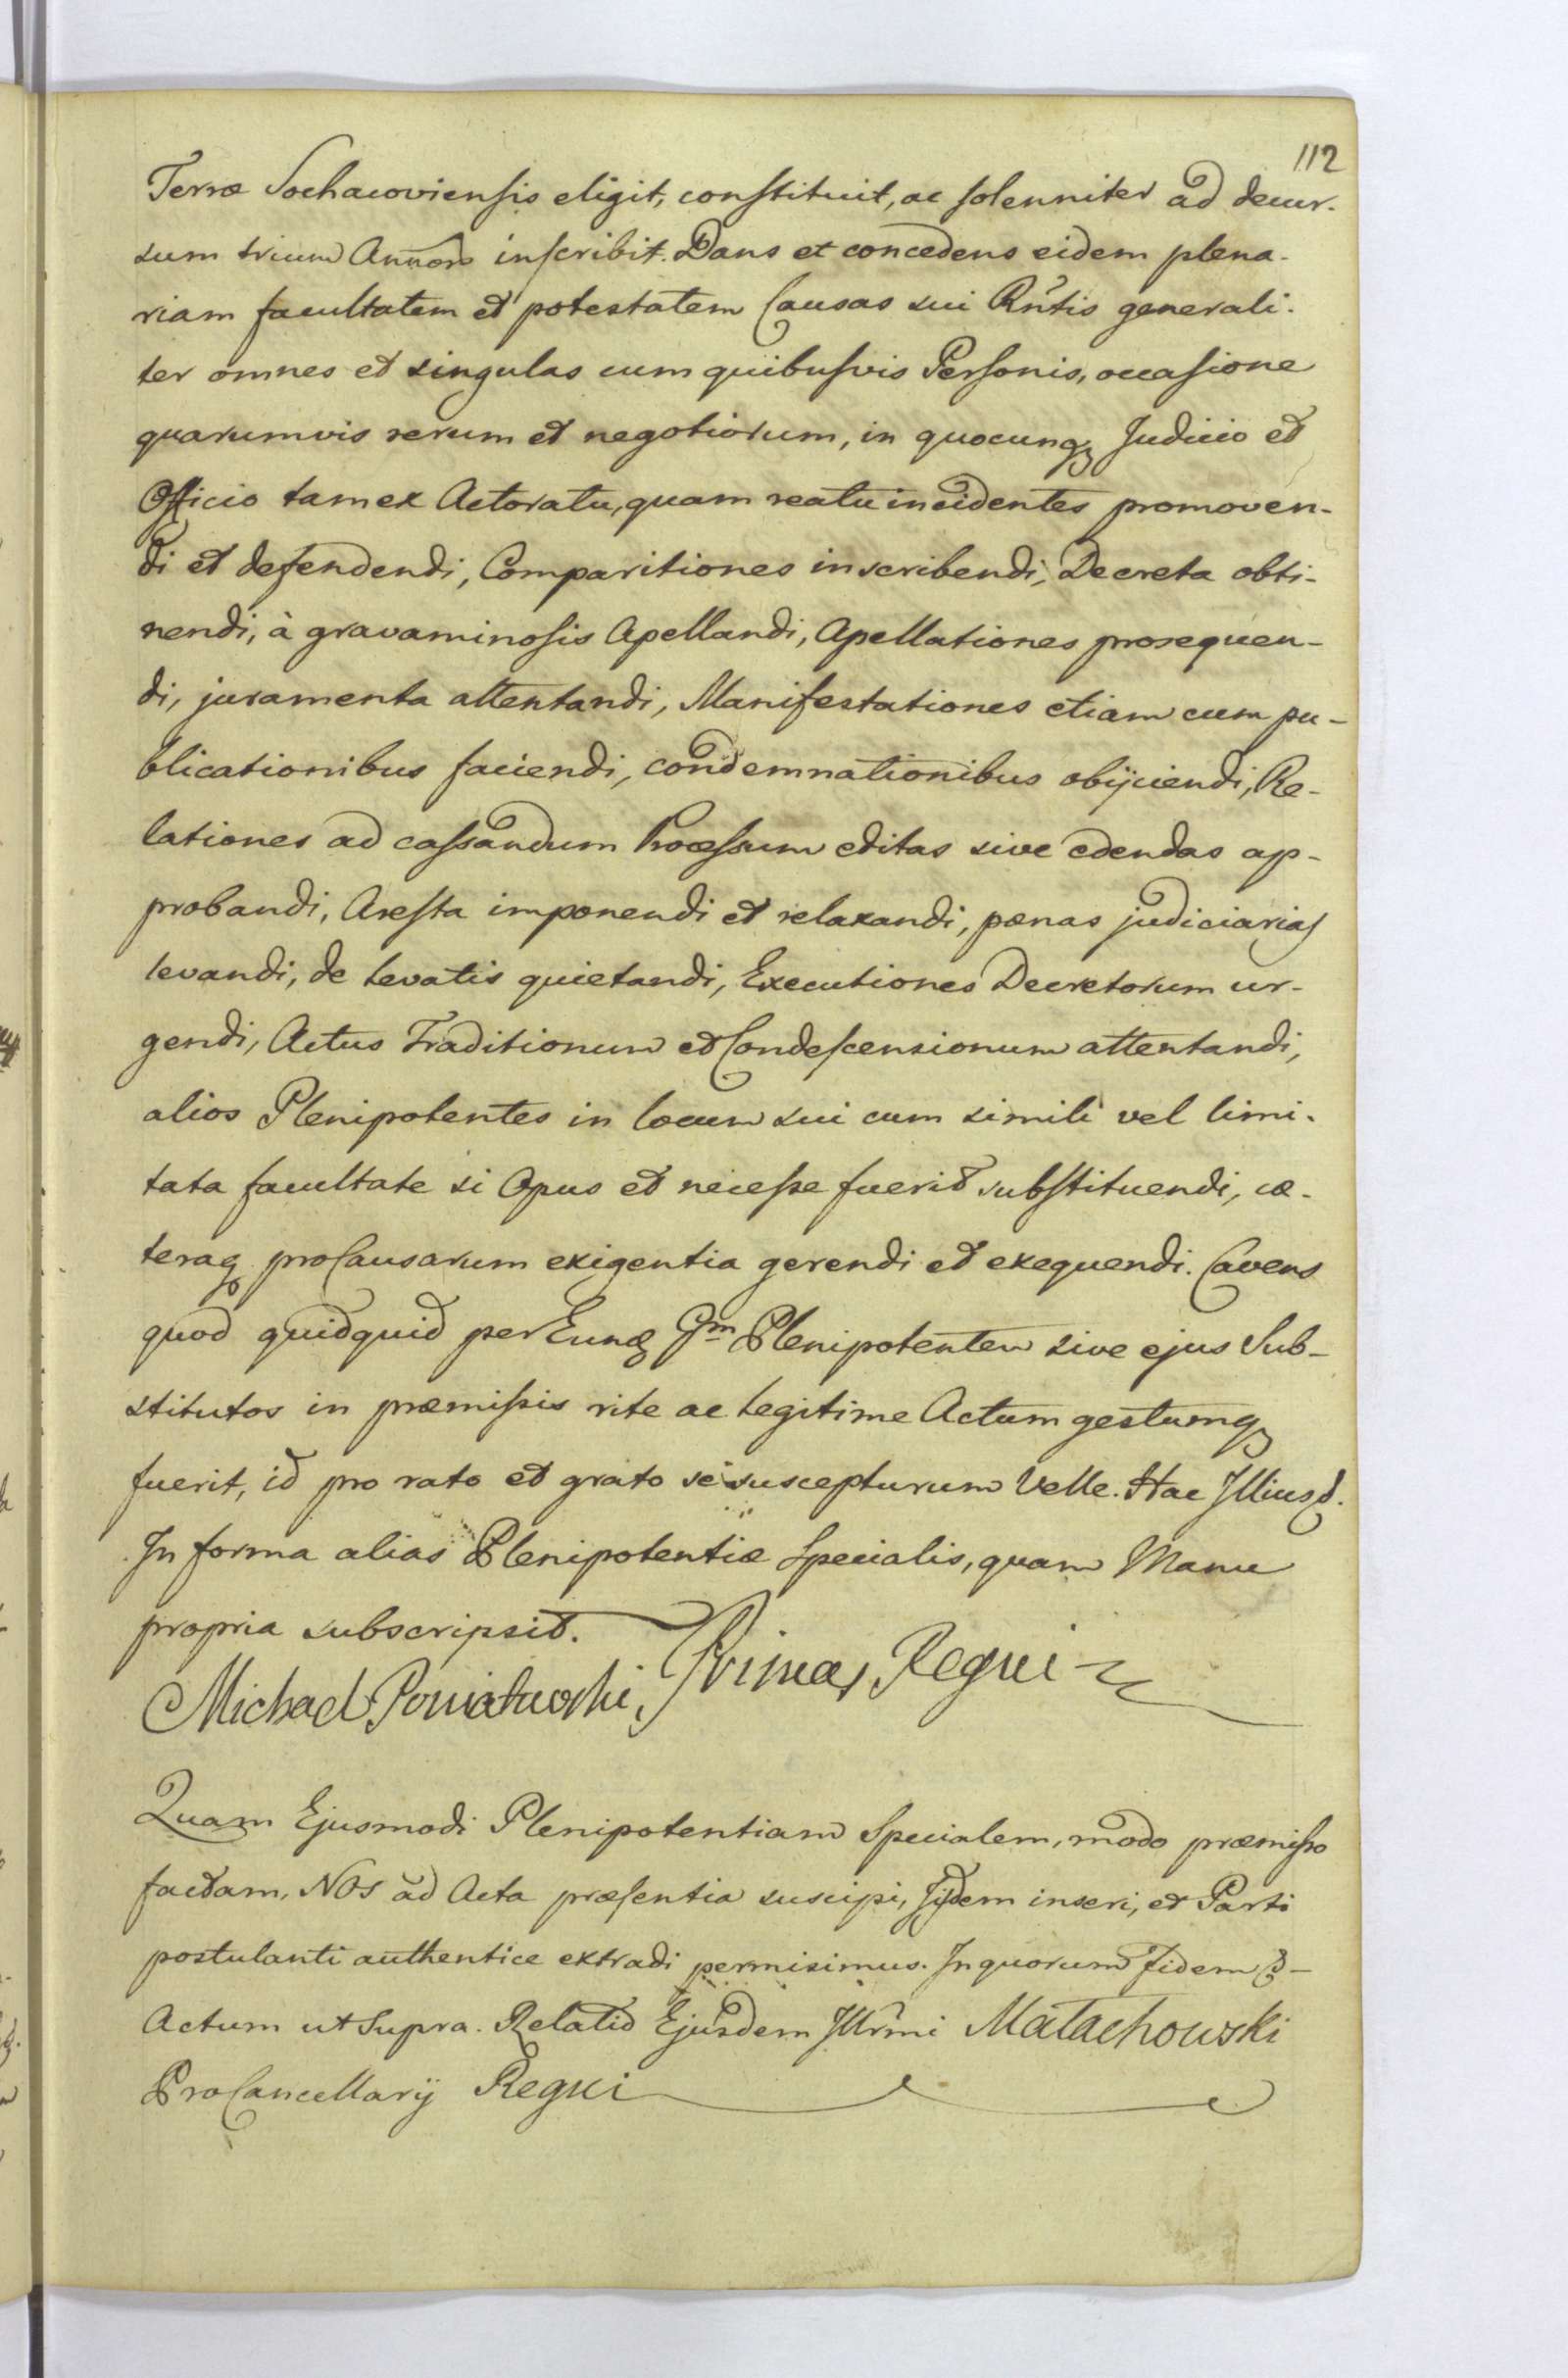 112
Terræ Sochacoviensis eligit, constituit, ac solenniter ad decur-
sum trium Annor̄ inscribit. Dans et concedens eidem plena-
riam facultatem et potestatem Causas sui Rñtis generali-
ter omnes et singulas cum quibusvis Personis, occasione
quarumvis rerum et negotiorum, in quocunq3 Judicio et
Officio tam ex Actoratu, quam reatu incidentes promoven-
di et defendendi, Comparitiones inscribendi, Decreta obti-
nendi, à gravaminosis Apellandi, Apellationes prosequen-
di, juramenta attentandi, Manifestationes etiam cum pu-
blicationibus faciendi, condemnationibus obijciendi, Re-
lationes ad cassandum Processum editas sive edendas ap-
probandi, Aresta imponendi et relaxandi, pænas judiciarias
levandi, de levatis quietandi, Executiones Decretorum ur-
gendi, Actus Traditionum et Condescensionum attentandi,
alios Plenipotentes in locum sui cum simili vel limi-
tata facultate si Opus et necesse fuerit substituendi, cæ-
teraq3 pro Causarum exigentia gerendi et exequendi. Cavens
quod quidquid per Eund Gm Plenipotentem sive ejus Sub-
stitutos in præmissis rite ac legitime Actum gestumq3
fuerit, id pro rato et grato se suscepturum Velle. Hac Illius
In forma alias Plenipotentiæ Specialis, quam Manu
propria subscripsit.
Michael Poniatowski, Primas Regni
Quam Ejusmodi Plenipotentiam Specialem, modo præmisso
factam, Nos ad Acta præsentia suscipi, Iisdem inseri, et Parti
postulanti authentice extradi permisimus. In quorum fidem
Actum ut Supra. Relatio Ejusdem Illrmi Małachowski
ProCancellarij Regni